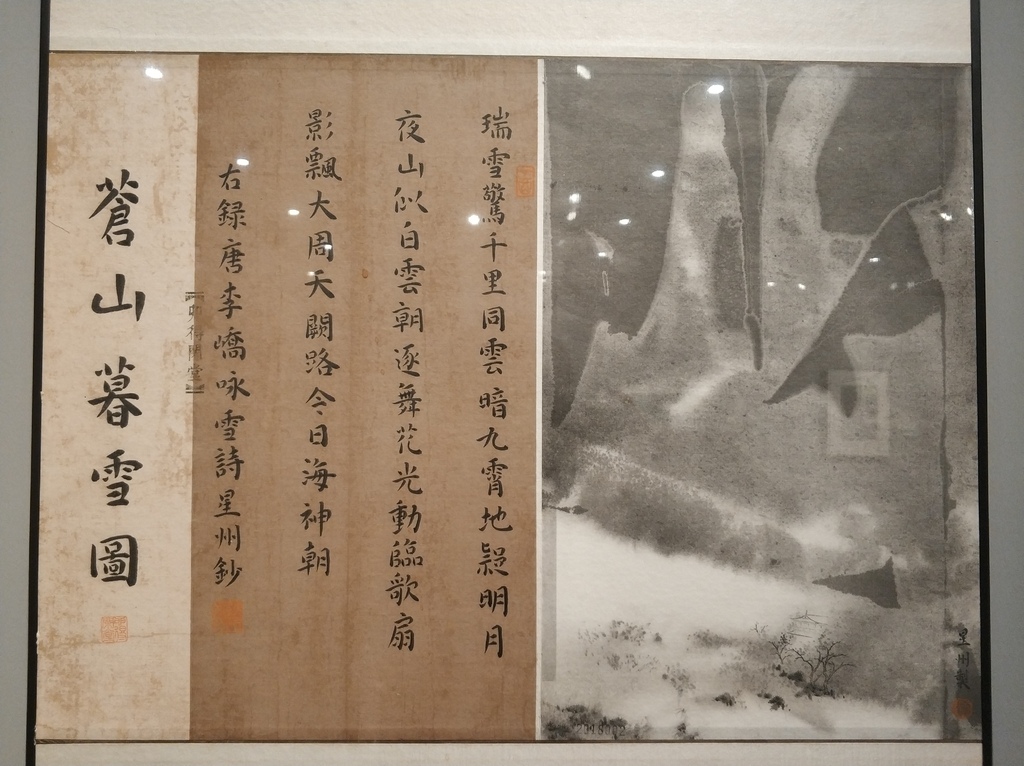 星州製
瑞雪驚千里同雲暗九霄地疑明月
夜山似白雲朝逐舞花光動臨歌扇
影飄大周天闕路今日海神朝
右録唐李嶠咏雪詩星州鈔
蒼山暮雪圖